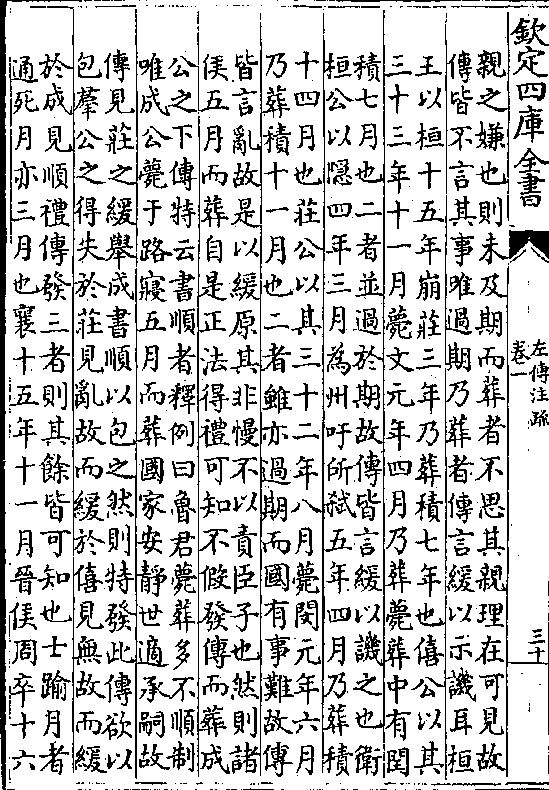 欽定四庫全書
左傳注疏
卷一
三十
親之嫌也則未及期而葬者不思其親理在可見故
傳皆不言其事唯過期乃葬者傳言緩以示譏耳桓
王以桓十五年崩莊三年乃葬積七年也僖公以其
三十三年十一月薨文元年四月乃葬薨葬中有閏
積七月也二者並過於期故傳皆言緩以譏之也衛
桓公以隱四年三月為州吁所弑五年四月乃葬積
十四月也莊公以其三十二年八月薨閔元年六月
乃葬積十一月也二者雖亦過期而國有事難故傳
皆言亂故是以緩原其非慢不以責臣子也然則諸
侯五月而葬自是正法得禮可知不假發傳而葬成
公之下傳特云書順者釋例曰魯君薨葬多不順制
唯成公薨于路寢五月而葬國家安靜世適承嗣故
傳見莊之緩舉成書順以包之然則特發此傳欲以
包羣公之得失於莊見亂故而緩於僖見無故而緩
於成見順禮傳發三者則其餘皆可知也士踰月者
通死月亦三月也襄十五年十一月晉侯周卒十六